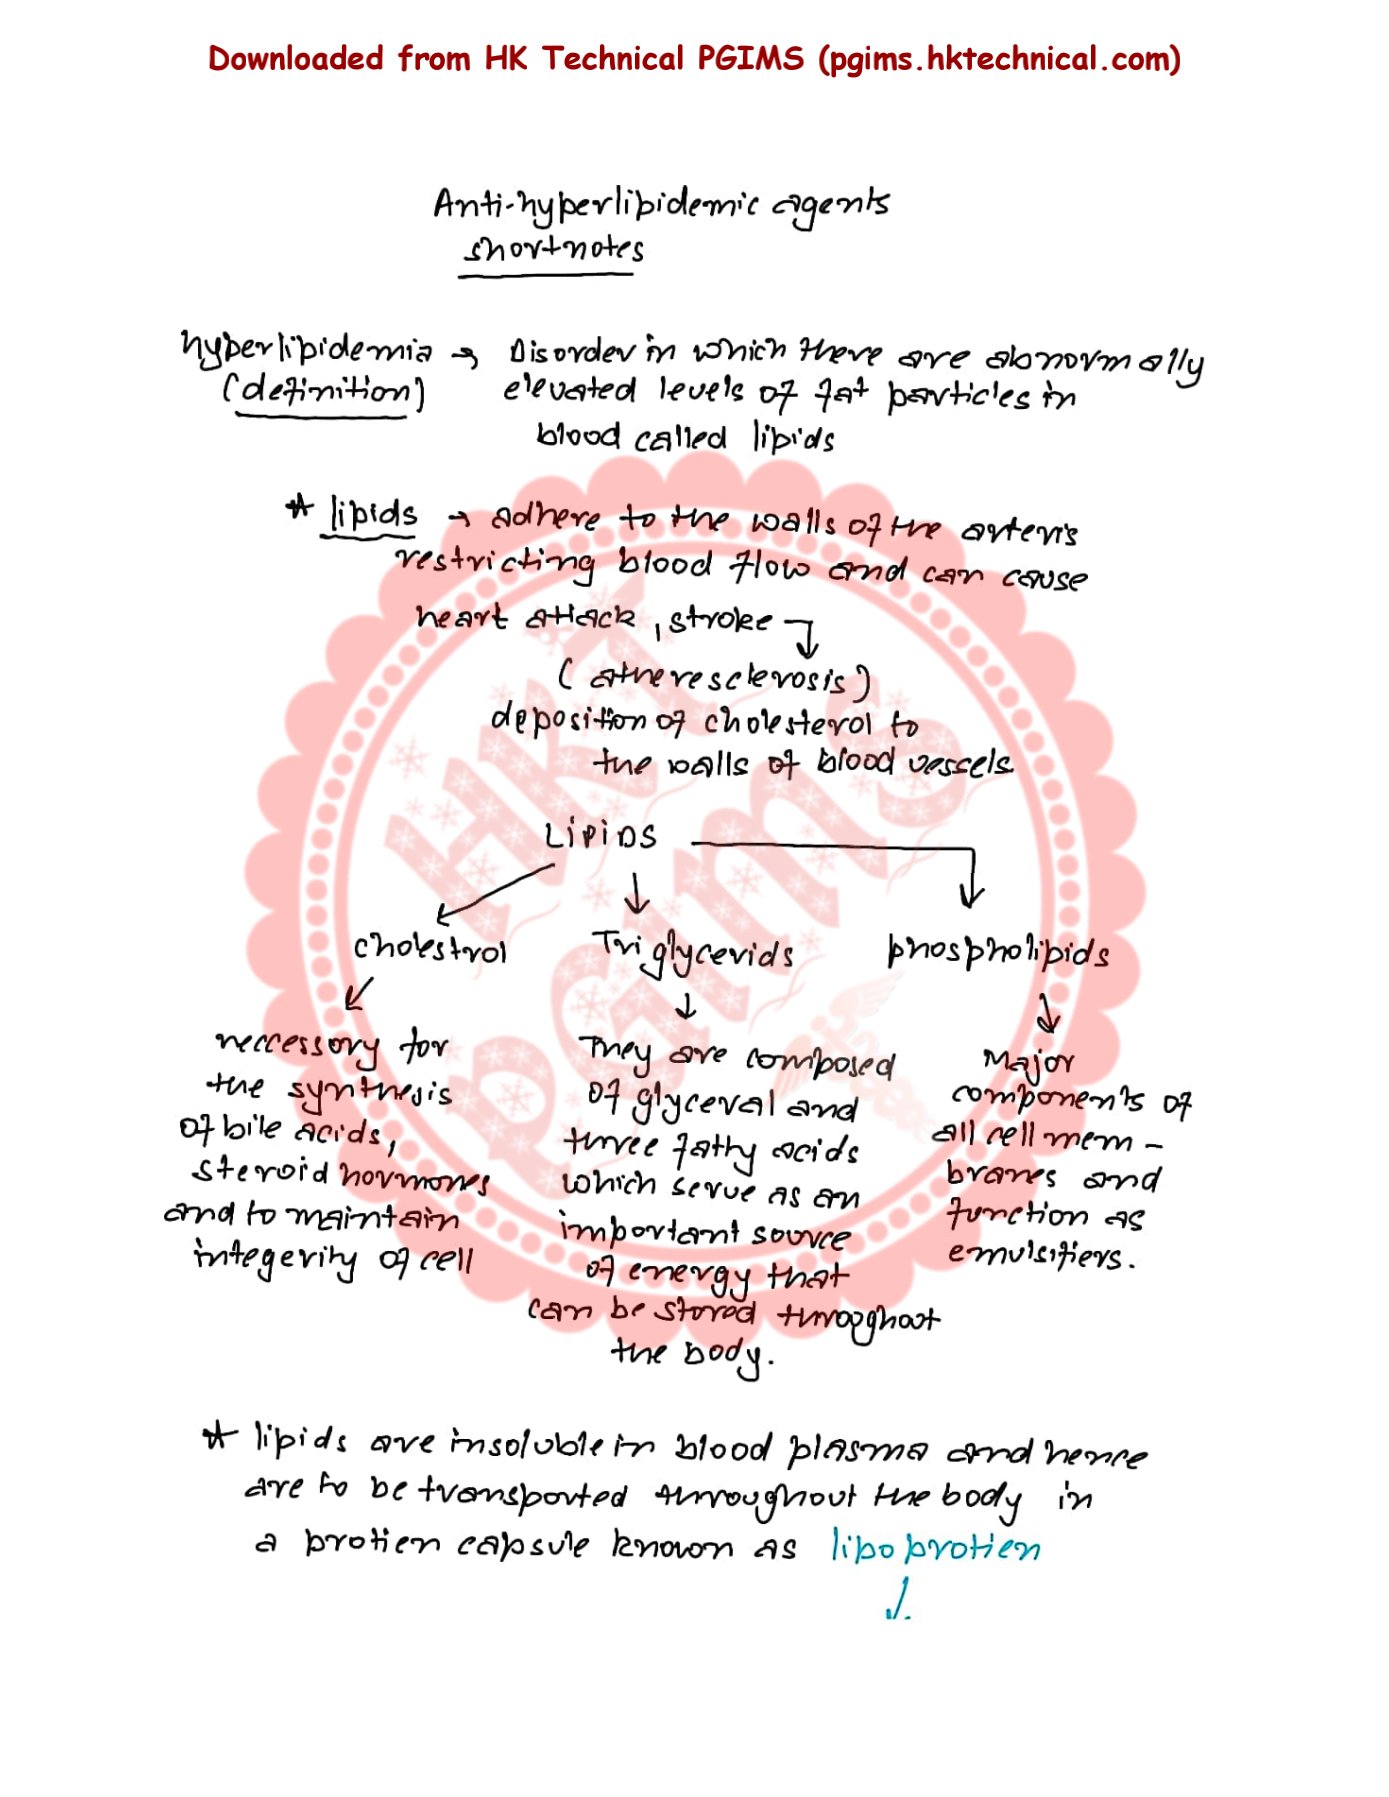 Downloaded from HK Technical PGIMS (pgims.hktechnical.com)
Anti-hyperlipidemic agents
shortnotes
hyperlipidemia → Disorder in which there are abnormally
(definition) elevated levels of fat particles in
blood called lipids
* lipids → adhere to the walls of the arteris
restricting blood flow and can cause
heart attack, stroke
(atheresclerosis)
deposition of cholesterol to
the walls of blood vessels
LipiDS
cholestrol Triglycerids phospholipids
neccessory for
the synthesis
of bile acids,
steroid hormones
and to maintain
integerity of cell
They are composed
of glyceral and
three fatty acids
which serve as an
important source
of energy that
can be stored throughout
the body.
Major
components of
all cell mem-
branes and
function as
emulsifiers.
* lipids are insoluble in blood plasma and hence
are to be transported throughout the body in
a protien capsule known as lipoprotien
HKT
PGIMS